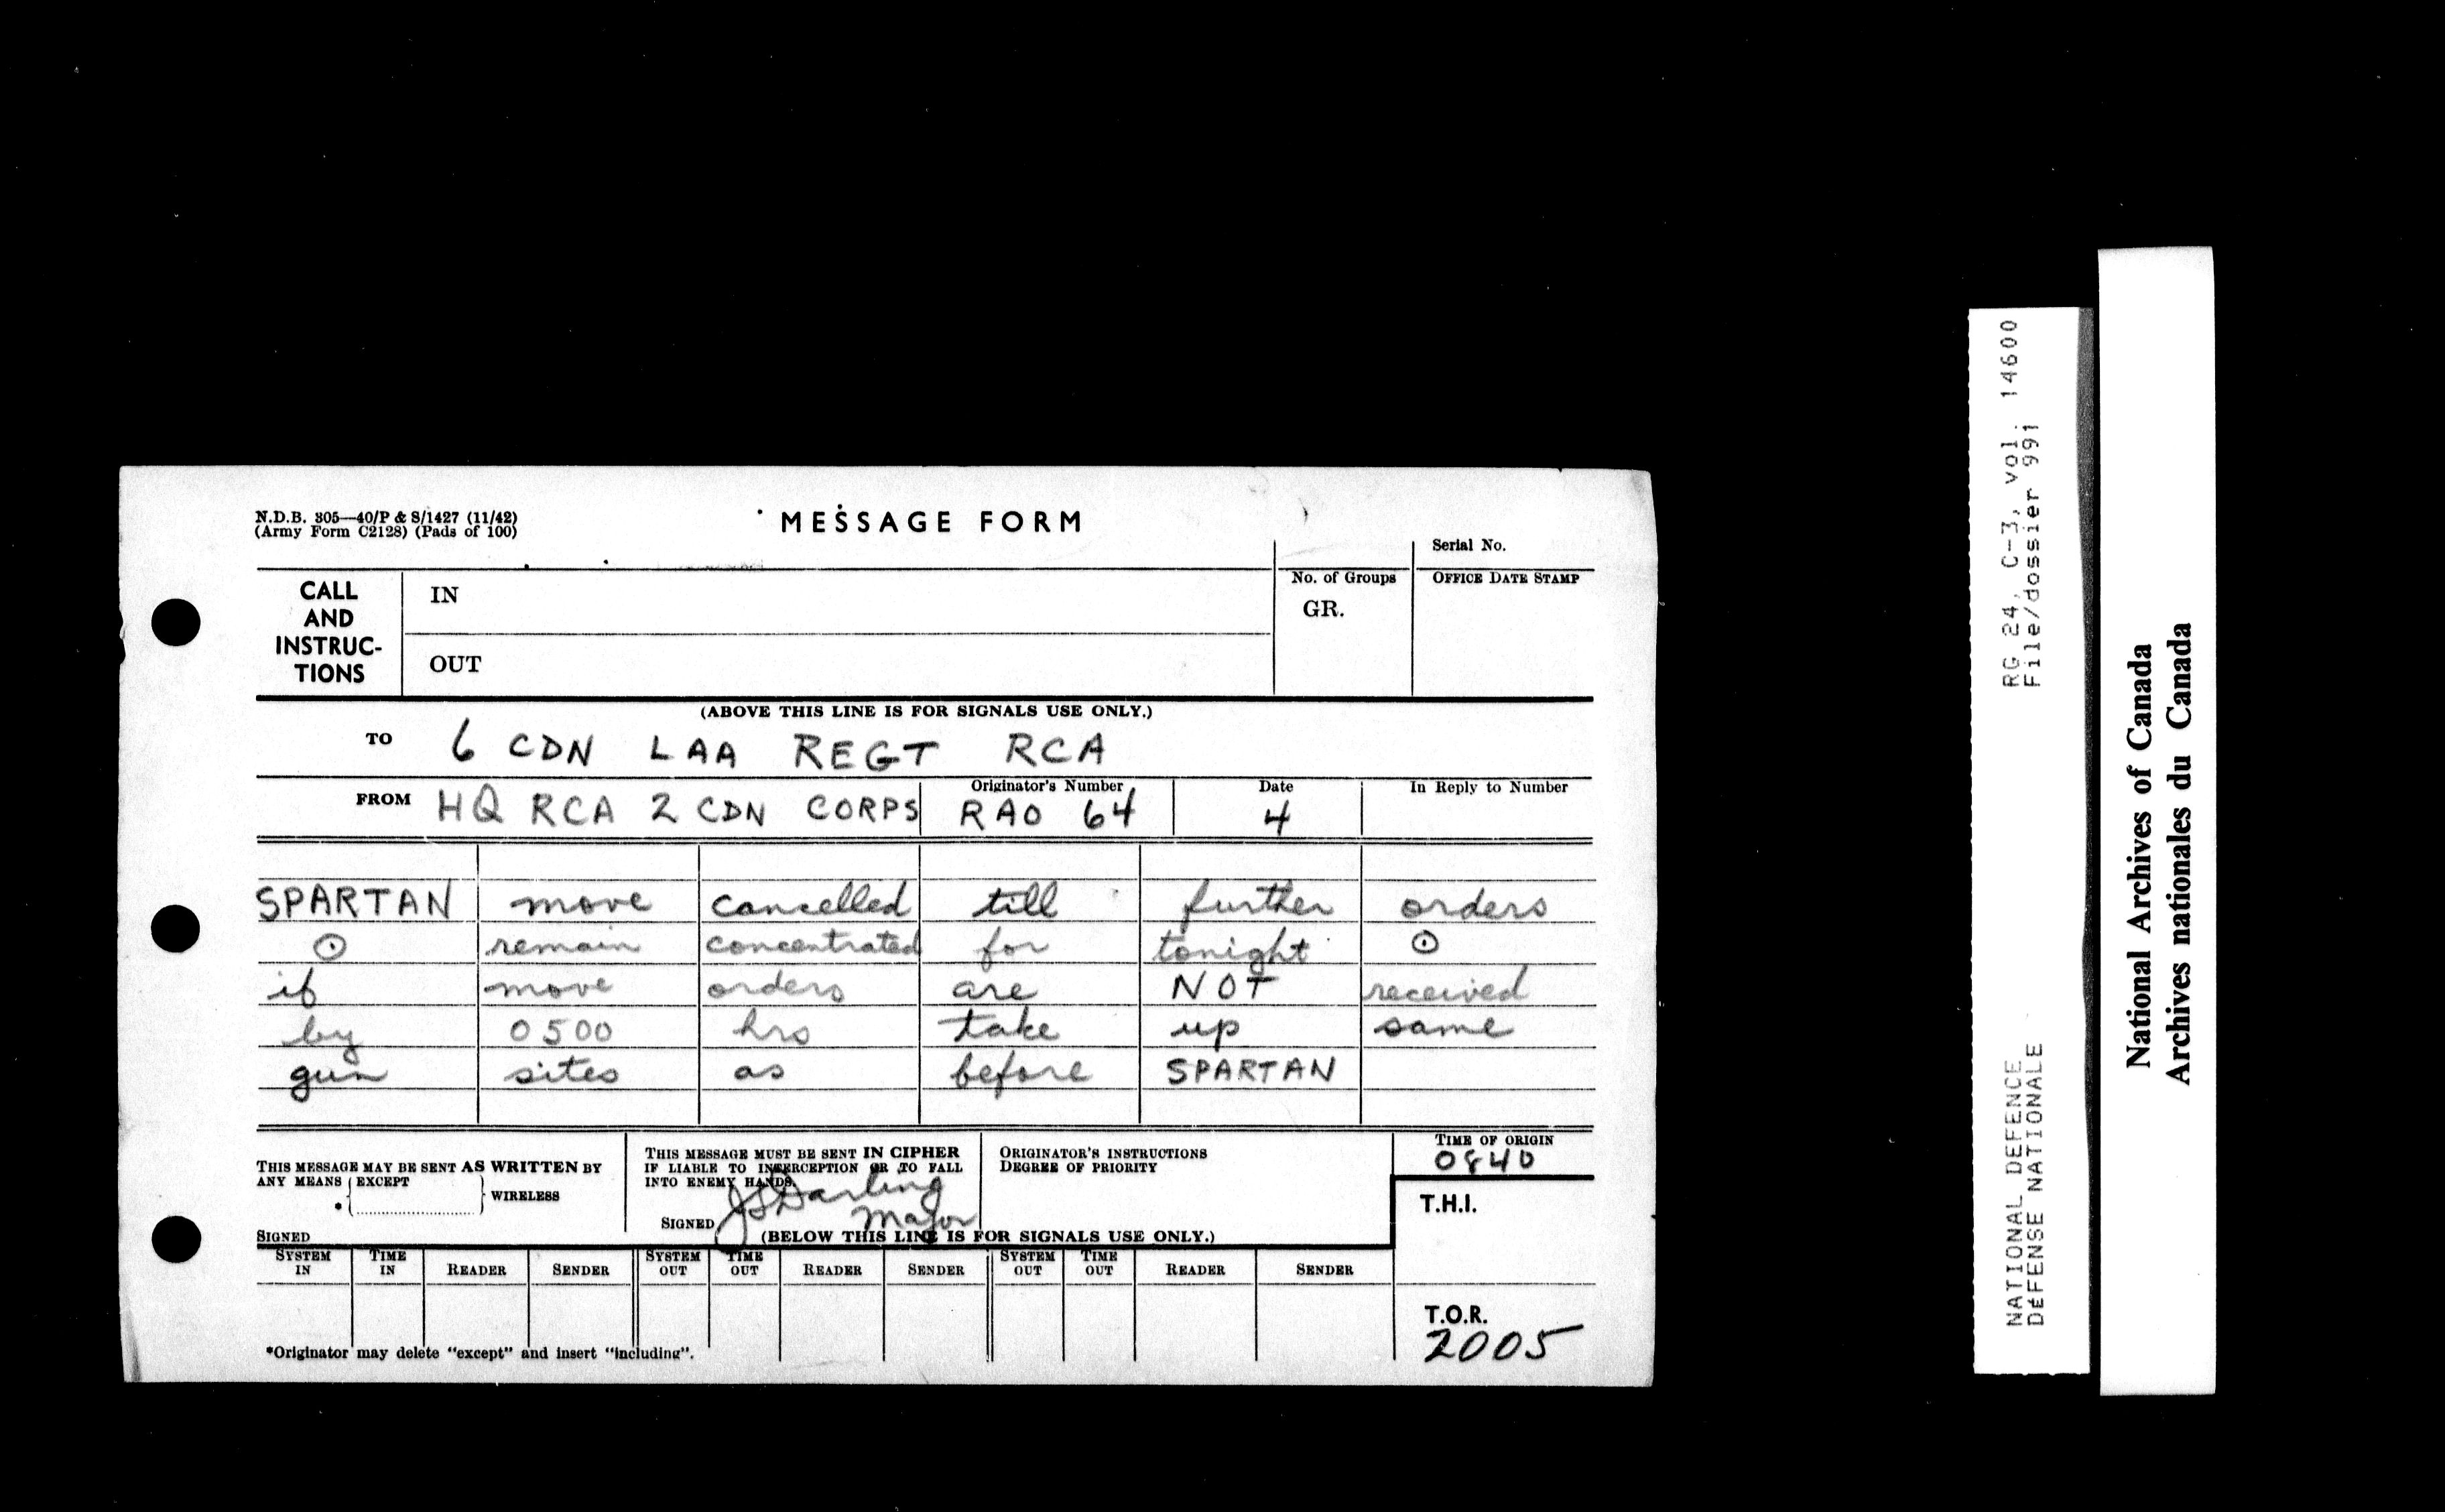 N.D.B. 305—40/P & S/1427 (11/42)
(Army Form C2128) (Pads of 100)
MESSAGE FORM
Serial No.
CALL AND INSTRUC-TIONS
IN
OUT
No. of Groups
GR.
OFFICE DATE STAMP
(ABOVE THIS LINE IS FOR SIGNALS USE ONLY.)
TO 6 CDN LAA REGT RCA
FROM HQ RCA 2 CDN CORPS
Originator's Number
RAO 64
Date
4
In Reply to Number
SPARTAN move cancelled till further orders
⊙ remain concentrated for tonight ⊙
if move orders are NOT received
by 0500 hrs take up same
gun sites as before SPARTAN
THIS MESSAGE MAY BE SENT AS WRITTEN BY
ANY MEANS EXCEPT
* { ........................ } WIRELESS
SIGNED
THIS MESSAGE MUST BE SENT IN CIPHER
IF LIABLE TO INTERCEPTION OR TO FALL
INTO ENEMY HANDS.
SIGNED JSDarling
Major
ORIGINATOR'S INSTRUCTIONS
DEGREE OF PRIORITY
TIME OF ORIGIN
0840
T.H.I.
(BELOW THIS LINE IS FOR SIGNALS USE ONLY.)
SYSTEM IN TIME IN READER SENDER SYSTEM OUT TIME OUT READER SENDER SYSTEM OUT TIME OUT READER SENDER
T.O.R.
2005
*Originator may delete "except" and insert "including".
RG 24, C-3, vol. 14600
File/dossier 991
NATIONAL DEFENCE
DÉFENSE NATIONALE
National Archives of Canada
Archives nationales du Canada